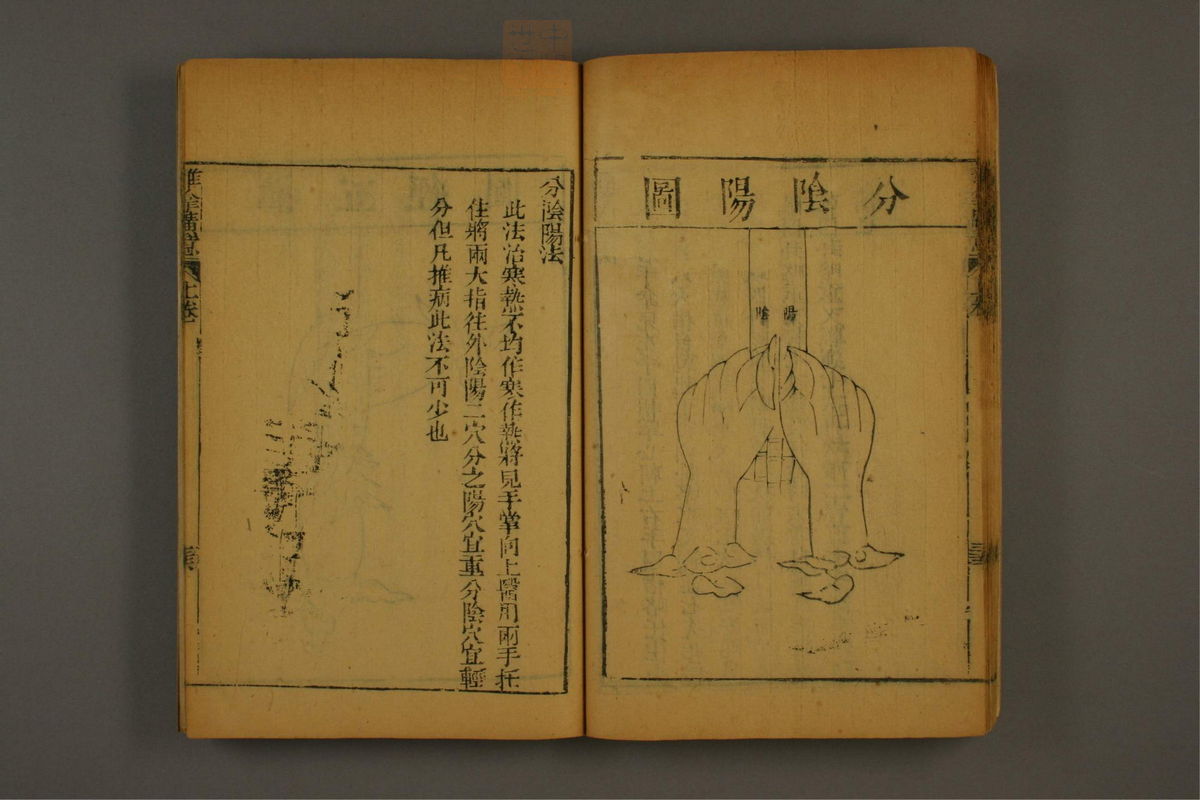 分陰陽圖
陽
陰
分陰陽法
此法治寒熱不均作寒作熱將見手掌向上醫用兩手托
住將兩大指往外陰陽二穴分之陽穴宜重分陰穴宜輕
分但凡推病此法不可少也
推拿廣意 上卷